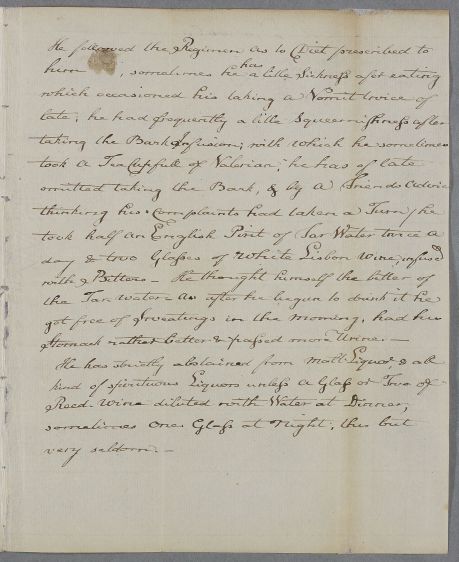 He followed the Regimen as to Diet prescribed to
him, sometimes he has a little Sickness after eating
which occasioned his taking a Vomit twice of
late, he had frequently a little Squeemishness after
taking the Bark Infusion; with which he sometimes
took a Tea Cupfull of Valerian; he has of late
omitted taking the Bark, & by a Friends advice
thinking his Complaints had taken a Turn, he
took half an English Pint of Tar Water twice a
day & two Glasses of White Lisbon Wine infused
with Bitters - He thought himself the better of
the Tar Water as after he begun to drink it he
got free of Sweatings in the Morning, had his
Stomach rather better & passed more Urine. -
He has strictly abstained from Malt Liquor, & all
kind of spirituous Liquors unless a Glass or Two of
Reed Wine diluted with Water at Dinner,
sometimes one Glass at Night, this but
very seldom. -